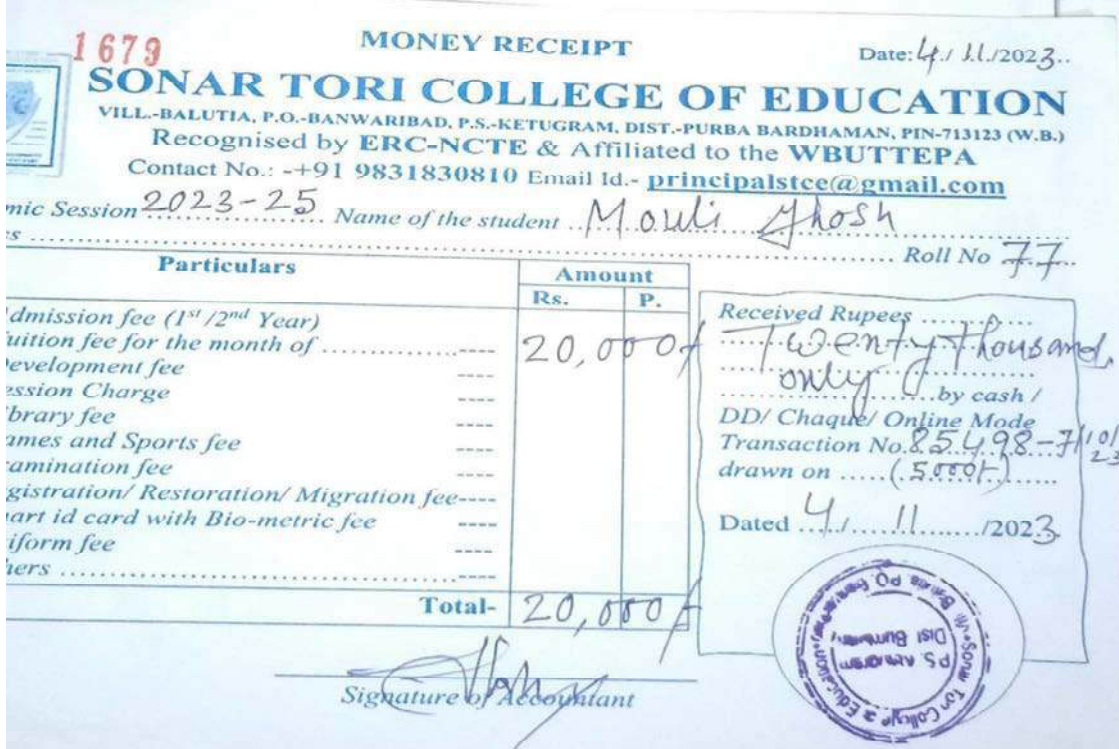 1679
MONEY RECEIPT
Date: 4/11/2023
SONAR TORI COLLEGE OF EDUCATION
VILL.-BALUTIA, P.O.-BANWARIBAD, P.S.-KETUGRAM, DIST.-PURBA BARDHAMAN, PIN-713123 (W.B.)
Recognised by ERC-NCTE & Affiliated to the WBUTTEPA
Contact No.: -+91 9831830810 Email Id.- principalstce@gmail.com
mic Session 2023-25 Name of the student Mouli Ghosh
s ........ Roll No 77
Particulars
Amount
Rs. P.
dmission fee (1st /2nd Year)
uition fee for the month of ................----
20,000/-
evelopment fee ----
ession Charge ----
brary fee ----
ames and Sports fee ----
amination fee ----
gistration/ Restoration/ Migration fee----
art id card with Bio-metric fee ----
iform fee ----
hers ........----
Total- 20,000/-
Received Rupees ............
Twenty thousand
only
by cash /
DD/ Chaque/ Online Mode
Transaction No. 85498-7/10/23
drawn on ..... (5000/-) ......
Dated 4/11/2023
Signature of Accountant
Sonar Tori College
Education
P.O.
P.S.
Dist